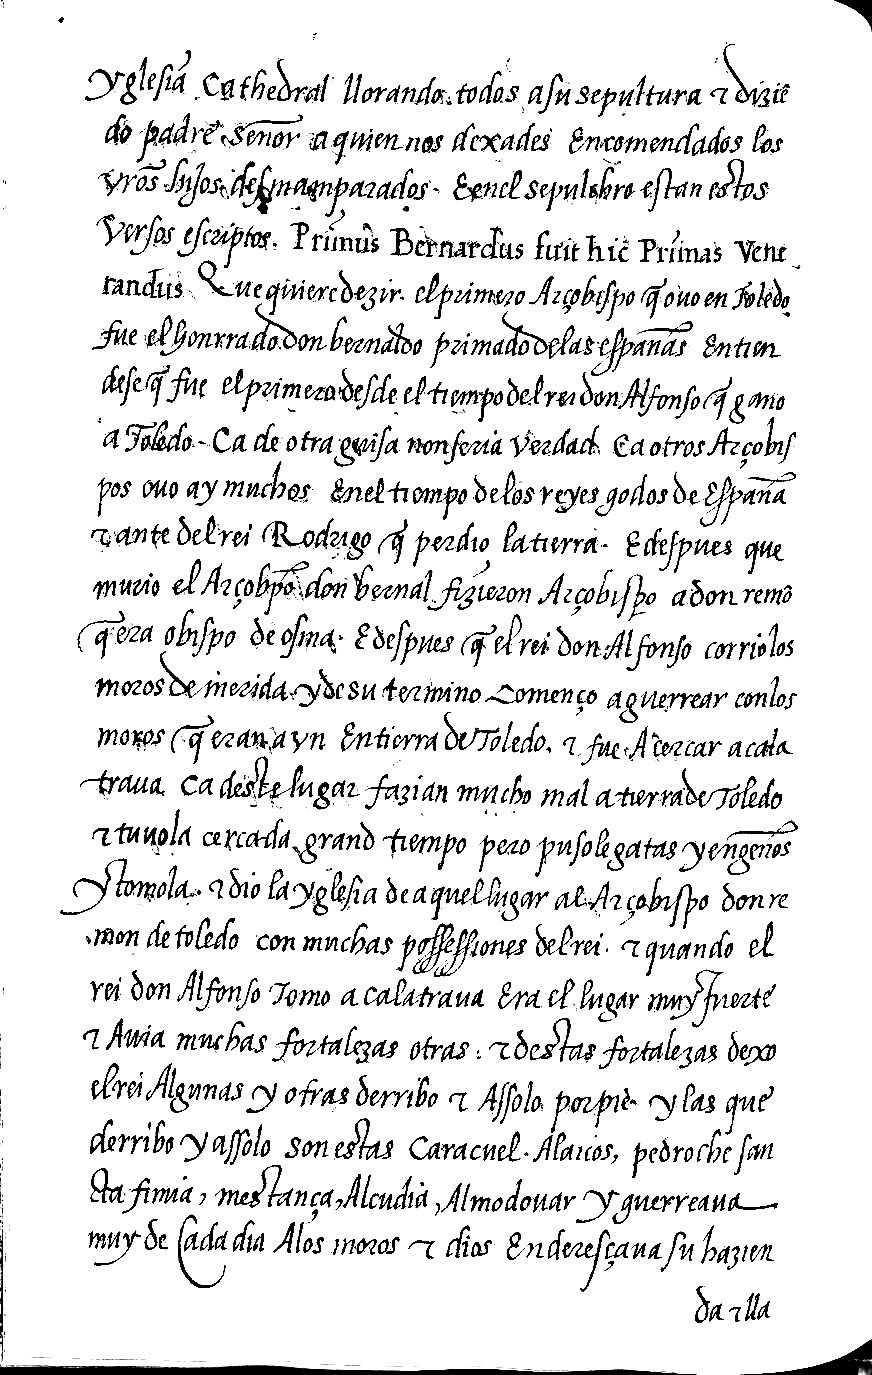 yglesia Cathedral llorando todos a su sepultura τ dizie᷈
do padre señor a quien nos dexades Encomendados los
vr̃os hijos desmamparados. E en el sepulchro estan estos
Versos escriptos. Primus Bernardus fuit hic Primas Vene
randus Que quiere dezir. el primero Arçobispo q̃ ouo en Toledo
fue el honrrado don bernaldo primado de las españas Entien
dese q̃ fue el primero desde el tiempo del rei don Alfonso q̃ gano
a Toledo - Ca de otra guisa non seria Verdad Ca otros Arçobis
pos ouo ay muchos En el tiempo de los reyes godos de España
τ ante del rei Rodrigo q̃ perdio la tierra. E despues que
murio el Arçobp̃o don bernal fizieron Arçobisp̃o a don remõ
q̃ era obispo de osma. E despues q̃ el rei don Alfonso corrio los
moros de merida y de su termino Començo a guerrear con los
moros q̃ eran a vn En tierra de Toledo. τ fue A cercar a cala
traua Ca deste lugar fazian mucho mal a tierra de Toledo
τ tuuola cercada grand tiempo pero puso le gatas y engeños
y tomola. τ dio la yglesia de aquel lugar al Arçobispo don re
mon de toledo con muchas possessiones del rei. τ quando el
rei don Alfonso Tomo a calatraua Era el lugar muy fuerte
τ Auia muchas fortalezas otras. τ destas fortalezas dexo
el rei Algunas y otras derribo τ Assolo por pie. y las que
derribo y assolo son estas Caracuel. Alarcos, pedroche san
cta fimia, mestança, Alcudia, Almodouar y guerreaua
muy de Cada dia A los moros τ dios Enderesçaua su hazien
da τ lla